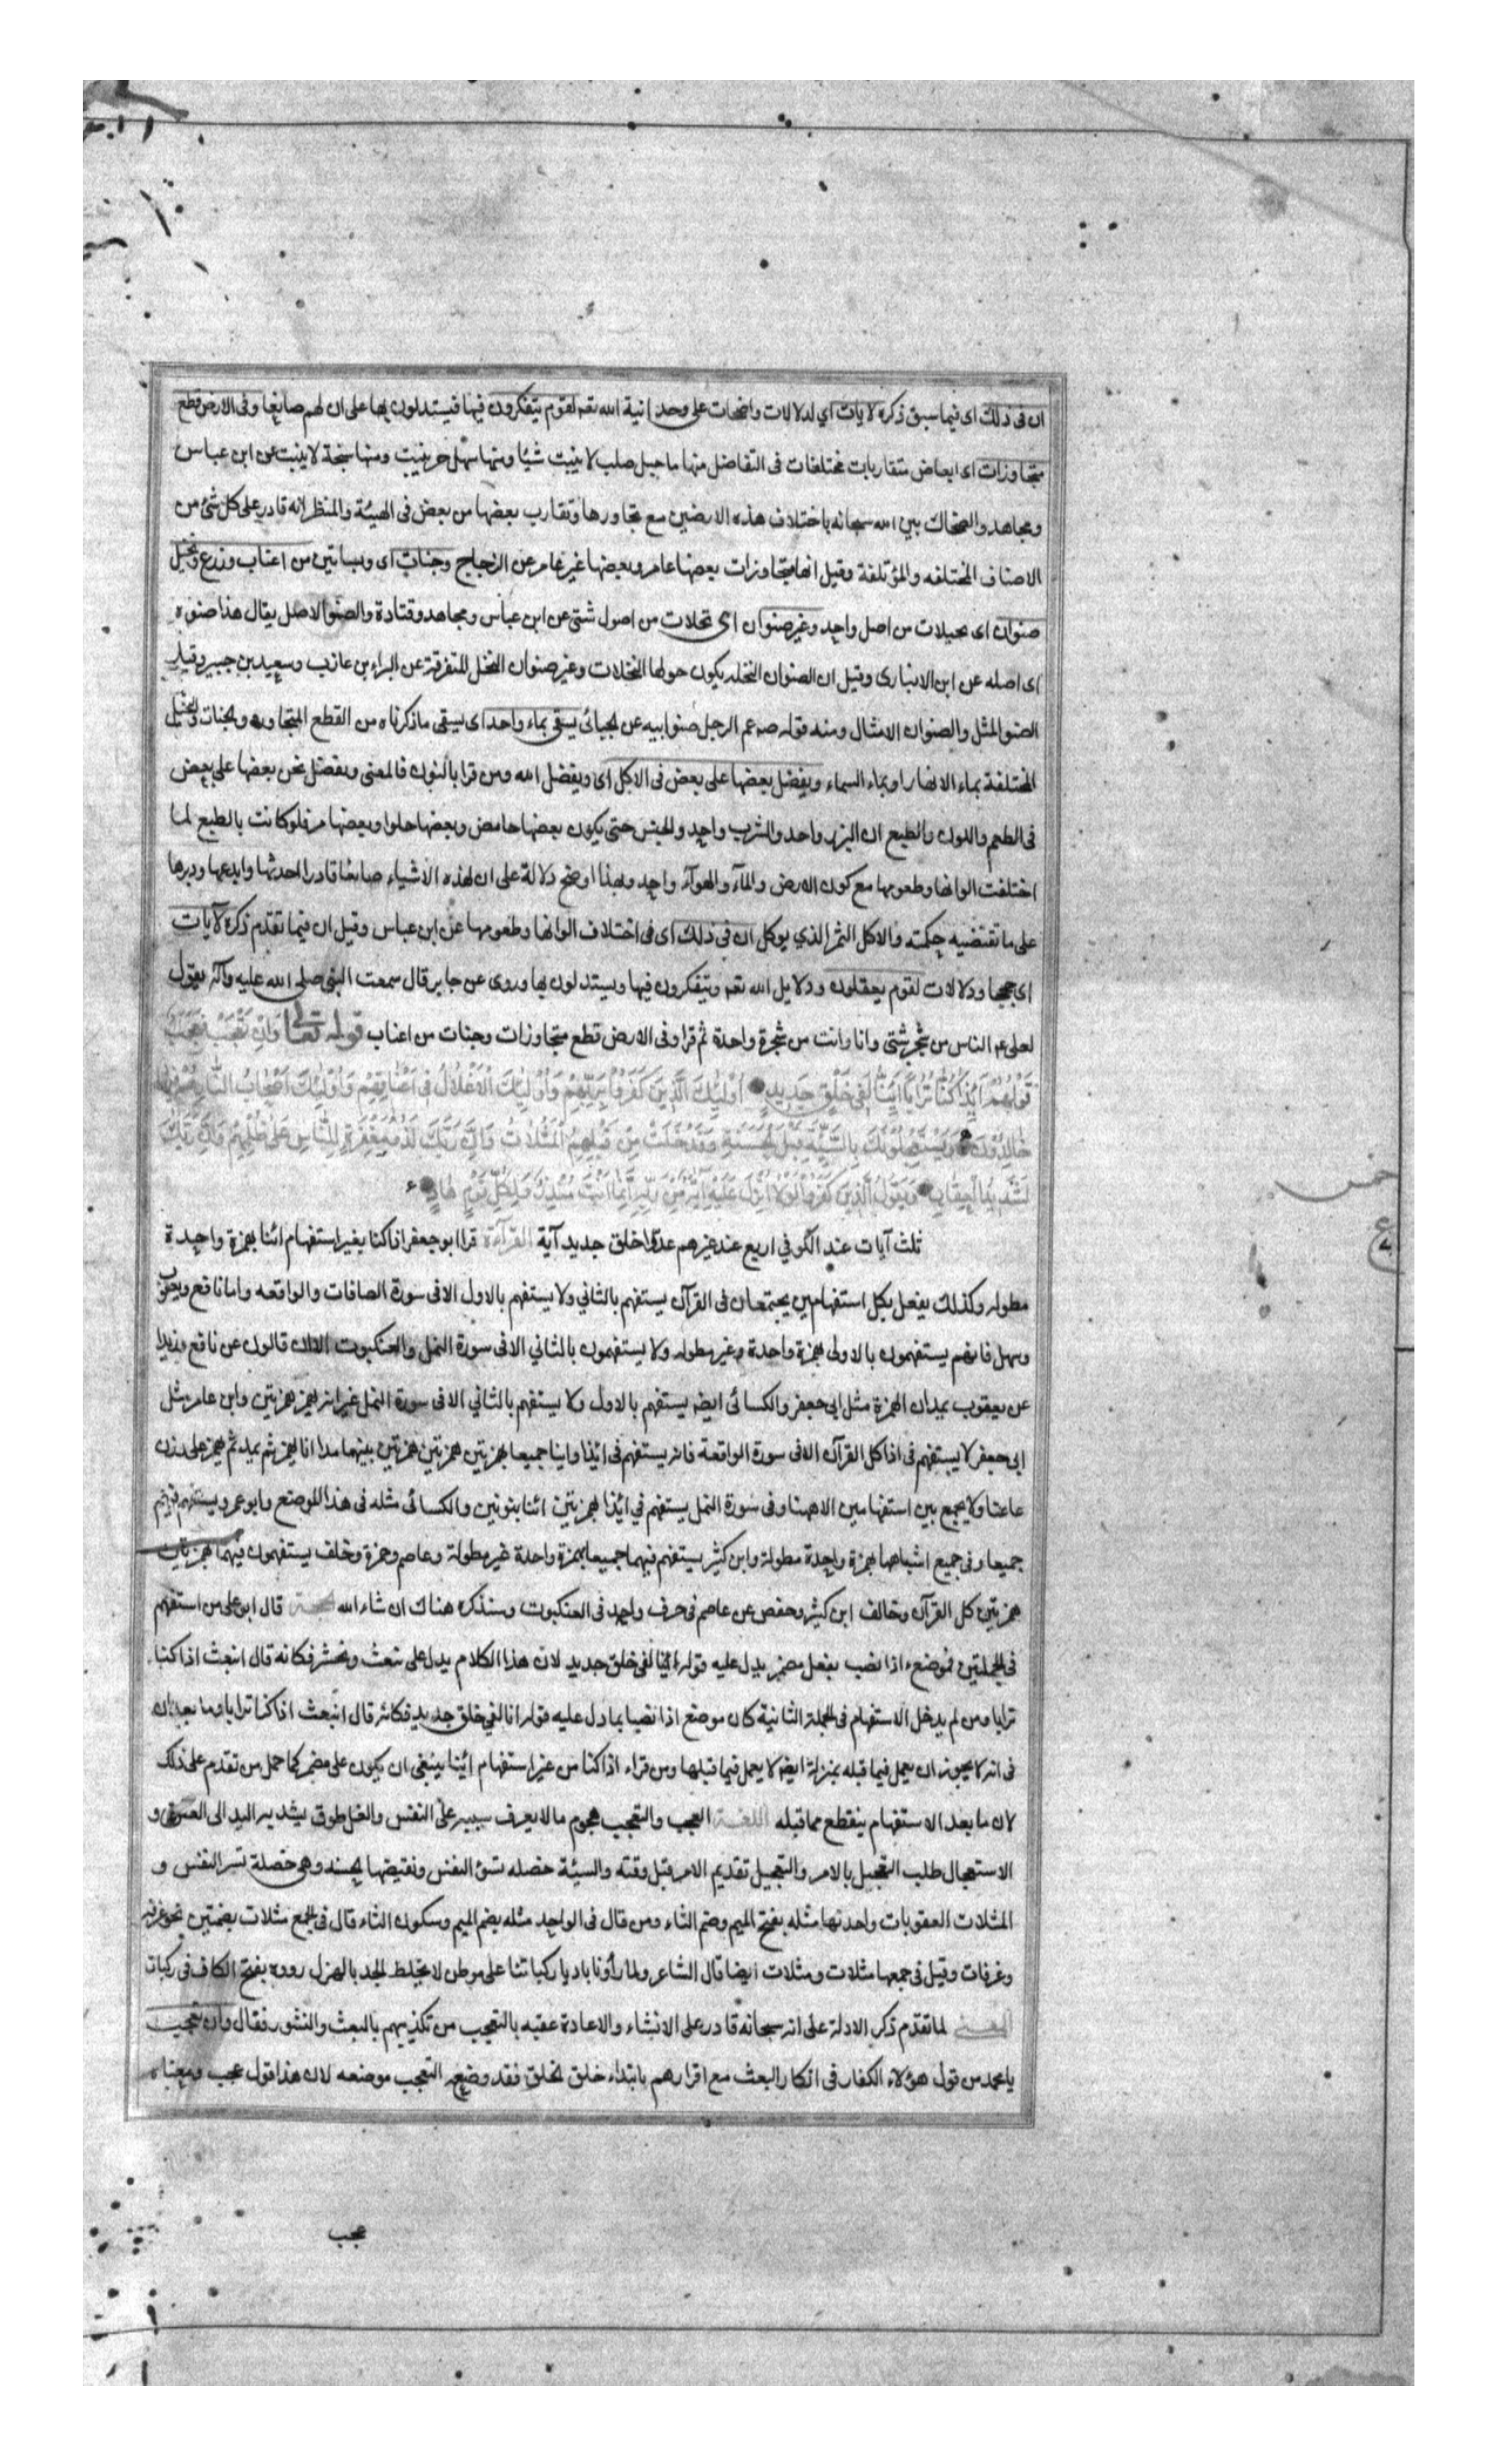 ان فی ذلك ای فیما سبق ذکره لایات ای لدلالات واضحات علی وحدانیة الله تعہ لقوم یتفکرون فیها فیستدلون بها علی ان لهم صانعا وفی الارض قطع
متجاورات ای ابعاض متقاربات مختلفات فی التفاضل منها ما جبل صلب لا ینبت شیئا ومنها سهل حر ینبت ومنها سبخة لا ینبت عن ابن عباس
ومجاهد والضحاك بین الله سبحانه باختلاف هذه الارضین مع تجاورها وتقارب بعضها من بعض فی الهیئة والمنظر انه قادر علی کل شئ من
الاصناف المختلفه والمؤتلفة وقیل انها متجاورات بعضها عامر وبعضها غیر عامر عن الزجاج وجنات ای وبساتین من اعناب وزرع ونخیل
صنوان ای نخیلات من اصل واحد وغیر صنوان ای نخلات من اصول شتی عن ابن عباس ومجاهد وقتادة والصنو الاصل یقال هذا صنوه
ای اصله عن ابن الانباری وقیل ان الصنوان النخله یکون حولها النخلات وغیر صنوان النخل المتفرقة عن البراء بن عازب وسعید بن جبیر وقیل
الصنو المثل والصنوان الامثال ومنه قوله صہ عم الرجل صنو ابیه عن الجبائی یسقی بماء واحد ای یسقی ما ذکرناه من القطع المتجاوره والجنات والنخیل
المختلفة بماء الانهار او بماء السماء ویفضل بعضها علی بعض فی الاکل ای ویفضل الله ومن قرا بالنون فالمعنی ونفضل نحن بعضها علی بعض
فی الطعم واللون والطبع ان البزر واحد والشرب واحد والجنس حتی یکون بعضها حامض وبعضها حلوا وبعضها مر فلو کانت بالطبع لما
اختلفت الوانها وطعومها مع کون الارض والمآء والهوآء واحد وهذا اوضح دلالة علی ان لهذه الاشیاء صانعا قادرا احدثها وابدعها ودبرها
علی ما تقتضیه حکمته والاکل الثمر الذي یوکل ان فی ذلك ای فی اختلاف الوانها وطعومها عن ابن عباس وقیل ان فیما تقدم ذکره لآیات
ای حججا ودلالات لقوم یعقلون ودلایل الله تعہ ویتفکرون فیها ویستدلون بها وروی عن جابر قال سمعت النبی صلی الله علیه وآله یقول
لعلی عہ الناس من شجر شتی وانا وانت من شجرة واحدة ثم قرا وفی الارض قطع متجاورات وجنات من اعناب قوله تعالی وَاِنْ تَعْجَبْ فَعَجَبٌ
قَوْلُهُمْ اَئِذَا کُنَّا تُرَابًا اَئِنَّا لَفِی خَلْقٍ جَدِیدٍ اُوْلَئِكَ الَّذِینَ کَفَرُوا بِرَبِّهِمْ وَاُوْلَئِكَ الْاَغْلَالُ فِی اَعْنَاقِهِمْ وَاُولَئِكَ اَصْحَابُ النَّارِ هُمْ فِیهَا
خَالِدُونَ وَیَسْتَعْجِلُونَكَ بِالسَّیِّئَةِ قَبْلَ الْحَسَنَةِ وَقَدْ خَلَتْ مِنْ قَبْلِهِمُ الْمَثُلَاتُ وَاِنَّ رَبَّكَ لَذُو مَغْفِرَةٍ لِلنَّاسِ عَلَی ظُلْمِهِمْ وَاِنَّ رَبَّكَ
لَشَدِیدُ الْعِقَابِ وَیَقُولُ الَّذِینَ کَفَرُوا لَوْلَا اُنْزِلَ عَلَیْهِ آیَةٌ مِنْ رَبِّهِ اِنَّمَا اَنْتَ مُنْذِرٌ وَلِکُلِّ قَوْمٍ هَادٍ
ثلث آیات عند الکوفي اربع عند غیرهم عدوا خلق جدید آیة القرآءة قرا ابو جعفر اذا کنا بغیر استفهام ائنا بهمزة واحدة
مطوله وکذلك یفعل بکل استفهامین یجتمعان فی القرآن یستفهم بالثاني ولا یستفهم بالاول الا فی سورة الصافات والواقعه واما نافع ویعقوب
وسهل فانهم یستفهمون بالاولی بهمزة واحدة وغیر مطوله ولا یستفهمون بالثاني الا فی سورة النمل والعنکبوت الا ان قالون عن نافع وزیدا
عن یعقوب یمدان الهمزة مثل ابی جعفر والکسائی ایضہ یستفهم بالاول ولا یستفهم بالثاني الا فی سورة النمل غیر انه یهمز همزتین وابن عامر مثل
ابی جعفر لا یستفهم فی اذا کل القرآن الا فی سورة الواقعة فانه یستفهم فی ائذا واینا جمیعا بهمزتین همزتین همزتین بینهما مدا اذا یهمز ثم یمد ثم یهمز علی وزن
عاعنا ولا یجمع بین استفهامین الا ههنا وفی سورة النمل یستفهم في ائذا بهمزتین ائنا بنونین والکسائی مثله فی هذا الموضع وابو عمرو یستفهم فیهم
جمیعا وفی جمیع اشباهها بهمزة واحدة مطولة وابن کثیر یستفهم فیهما جمیعا بهمزة واحدة غیر مطولة وعاصم وحمزة وخلف یستفهمون فیهما بهمزتین
همزتین کل القرآن وخالف ابن کثیر وحفص عن عاصم فی حرف واحد فی العنکبوت وسنذکره هناك ان شاء الله الحجة قال ابو علی من استفهم
فی الجملتین فموضع اذا نصب بفعل مضمر یدل علیه قوله ائنا لفی خلق جدید لان هذا الکلام یدل علی نبعث ونحشر فکانه قال انبعث اذا کنا
ترابا ومن لم یدخل الاستفهام فی الجملة الثانیة کان موضع اذا نصبا بما دل علیه قوله انا لفي خلق جدید فکانه قال انبعث اذا کنا ترابا وما بعد ان
فی انه لا یجوز ان یعمل فیما قبله بمنزلة ایضہ لا یعمل فیما قبلها ومن قراء اذا کنا من غیر استفهام ائنا ینبغی ان یکون علی مضمر کما حمل من تقدم علی ذلك
لان ما بعد الاستفهام ینقطع مما قبله اللغة العجب والتعجب هجوم ما لا یعرف سببه علی النفس والغل طوق یشد به الید الی العنق و
الاستعجال طلب التعجیل بالامر والتعجیل تقدیم الامر قبل وقته والسیئة خصله تسوء النفس ونقیضها الحسنه وهی خصلة تسر النفس و
المثلات العقوبات واحدتها مثله بفتح المیم وضم الثاء ومن قال فی الواحد مثله بضم المیم وسکون الثاء قال فی الجمع مثلات بضمتین نحو غرفه
وغرفات وقیل فی جمعها مثلات ومثلات ایضا قال الشاعر ولما رأونا بادیا رکباتنا علی موطن لا نخلط الجد بالهزل رووه بفتح الکاف فی رکبات
المعنی لما تقدم ذکر الادلة علی انه سبحانه قادر علی الانشاء والاعادة عقبه بالتعجب من تکذیبهم بالبعث والنشور فقال وان تعجب
یا محمد من قول هؤلاء الکفار فی انکار البعث مع اقرارهم بابتداء خلق الخلق فقد وضع التعجب موضعه لان هذا قول عجب ومعناه
عجب